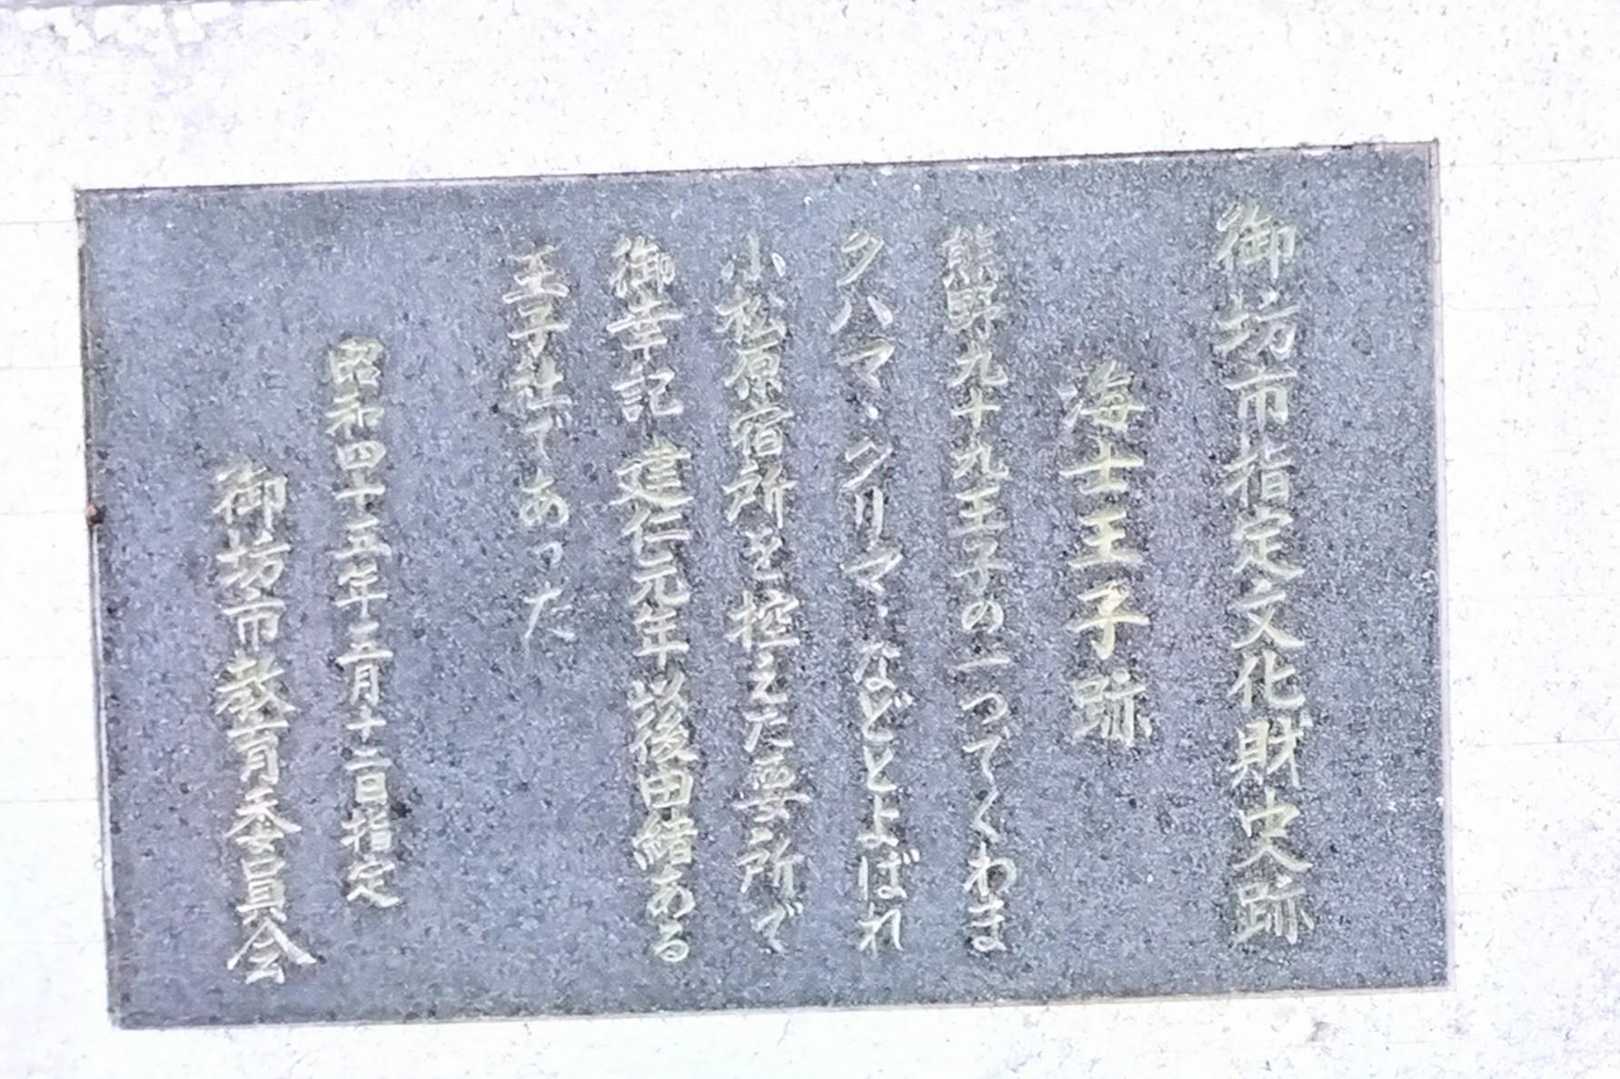 御坊市指定文化財史跡
海士王子跡
熊野九十九王子の一つでくわま
クハマ、クリマ、などとよばれ
小松原宿所を控えた要所で
御幸記 建仁元年以後由緒ある
王子社であった
昭和四十五年五月十二日指定
御坊市教育委員会